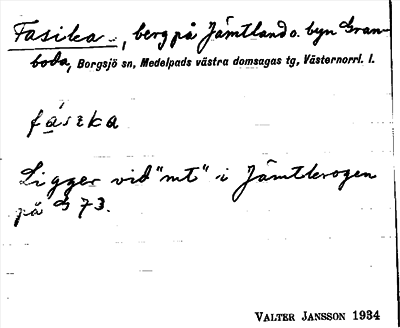 Fasika, berg på Jämtland o. byn Gran-
boda, Borgsjö sn, Medelpads västra domsagas tg, Västernorrl. l.
fásika
Ligger vid "mt" i Jämtkrogen
på G 73.
VALTER JANSSON 1934